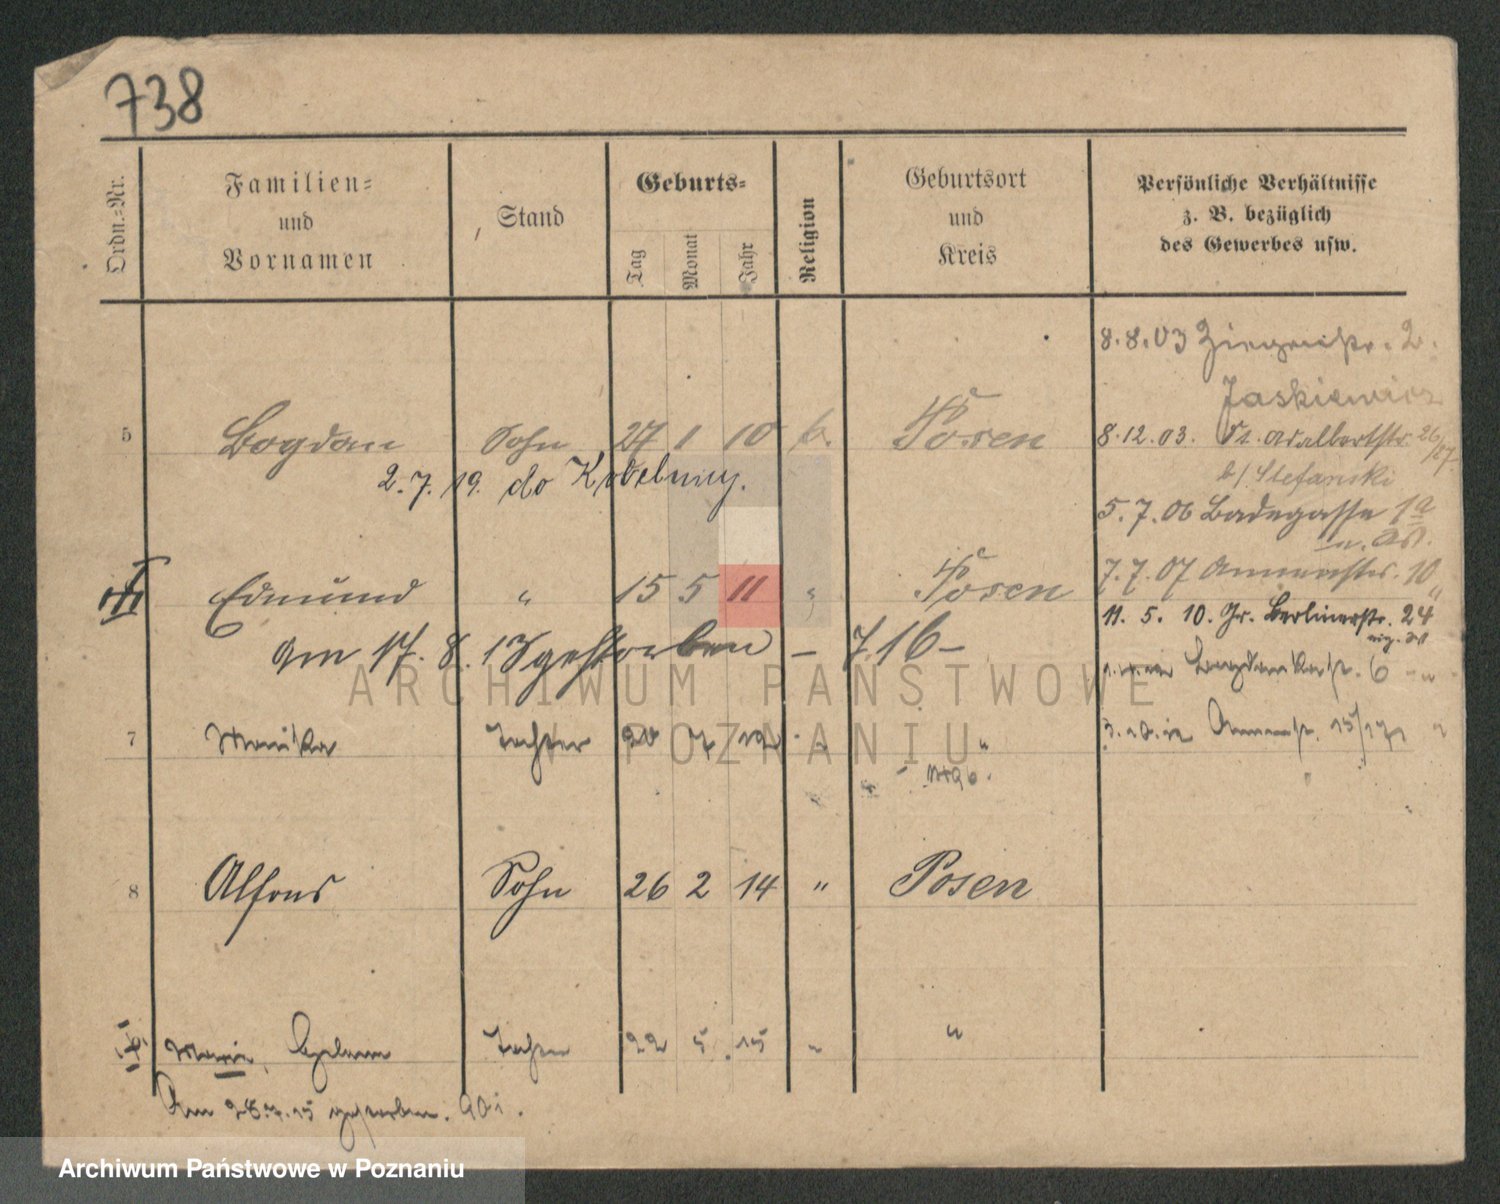 738
Ordn.-Nr.
Familien-
und
Vornamen
Stand
Geburts-
Tag
Monat
Jahr
Religion
Geburtsort
und
Kreis
Persönliche Verhältnisse
z. B. bezüglich
des Gewerbes usw.
8.8.03 2.
Jaskiewicz
5 Bogdan Sohn 27 1 10 k. Posen
8.12.03. St. Adalbertstr. 26/27
b/ Stefanski
2.7.19. do Kobelnicy.
5.7.06 Badegasse 1a
7.7.07 10
Edmund " 15 5 11 " Posen
11. 5. 10. Gr. Berlinerstr. 24
am 17. 8. gestorben – 7.16 –
6
ARCHIWUM PAŃSTWOWE
W POZNANIU
7 Tochter 20 7 12 " "
3.10.12 15/17
8 Alfons Sohn 26 2 14 " Posen
Marie, Tochter 22 5 15 " "
Am 28.7.15 gestorben.
Archiwum Państwowe w Poznaniu